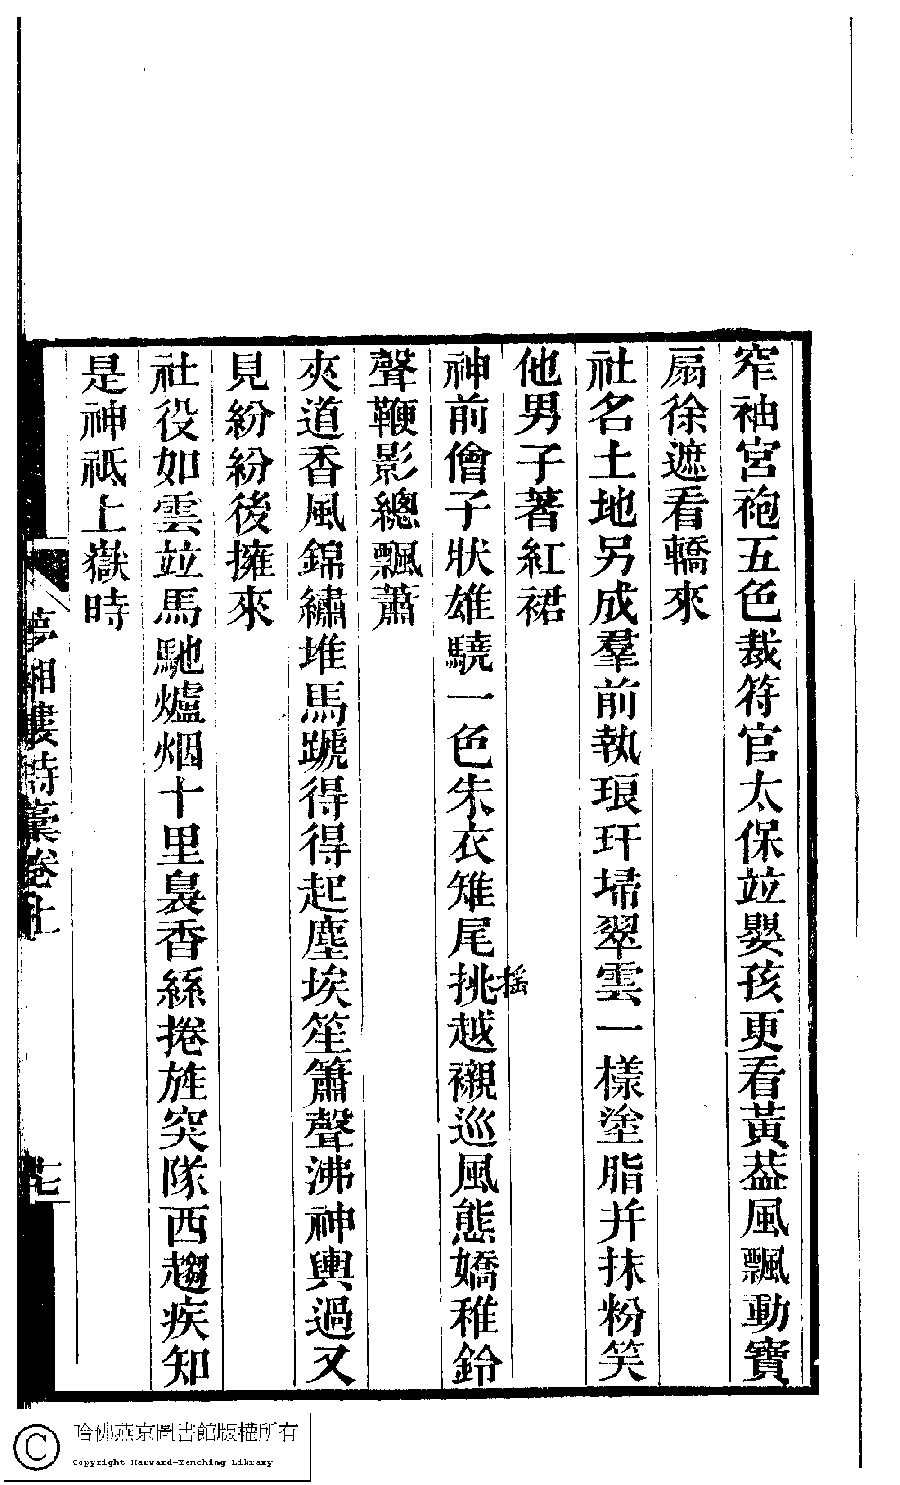 窄袖宮袍五色裁符官太保竝嬰孩更看黃葢風飄動寶
扇徐遮看轎來
社名土地另成羣前執琅玕埽翠雲一樣塗脂幷抹粉笑
他男子著紅裙
神前儈子狀雄驍一色朱衣雉尾挑越襯巡風態嬌稚鈴
搖
聲鞭影總飄蕭
夾道香風錦繡堆馬蹏得得起塵埃笙簫聲沸神輿過又
見紛紛後擁來
社役如雲竝馬馳爐烟十里裊香絲捲旌突隊西趨疾知
是神祇上嶽時
夢湘樓詩稾卷上
七
哈佛燕京圖書館版權所有
Copyright Harvard-Yenching Library